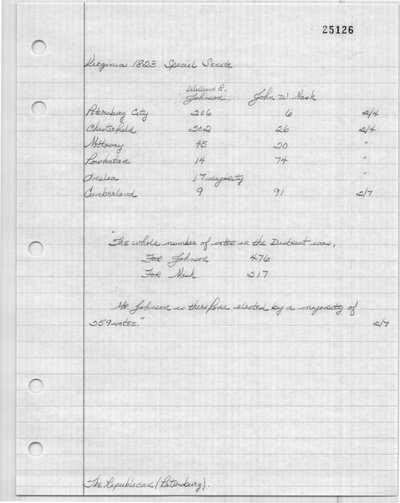 25126
Virginia 1823 Special Senate
William R. Johnson John W. Nash
Petersburg City 206 6 2/4
Chesterfield 202 26 2/4
Nottoway 45 20 "
Powhatan 14 74 "
Amelia 17 majority "
Cumberland 9 91 2/7
"The whole number of votes in the District was,
For Johnson 476
For Nash 217
Mr. Johnson is therefore elected by a majority of
259 votes." 2/7
The Republican (Petersburg).